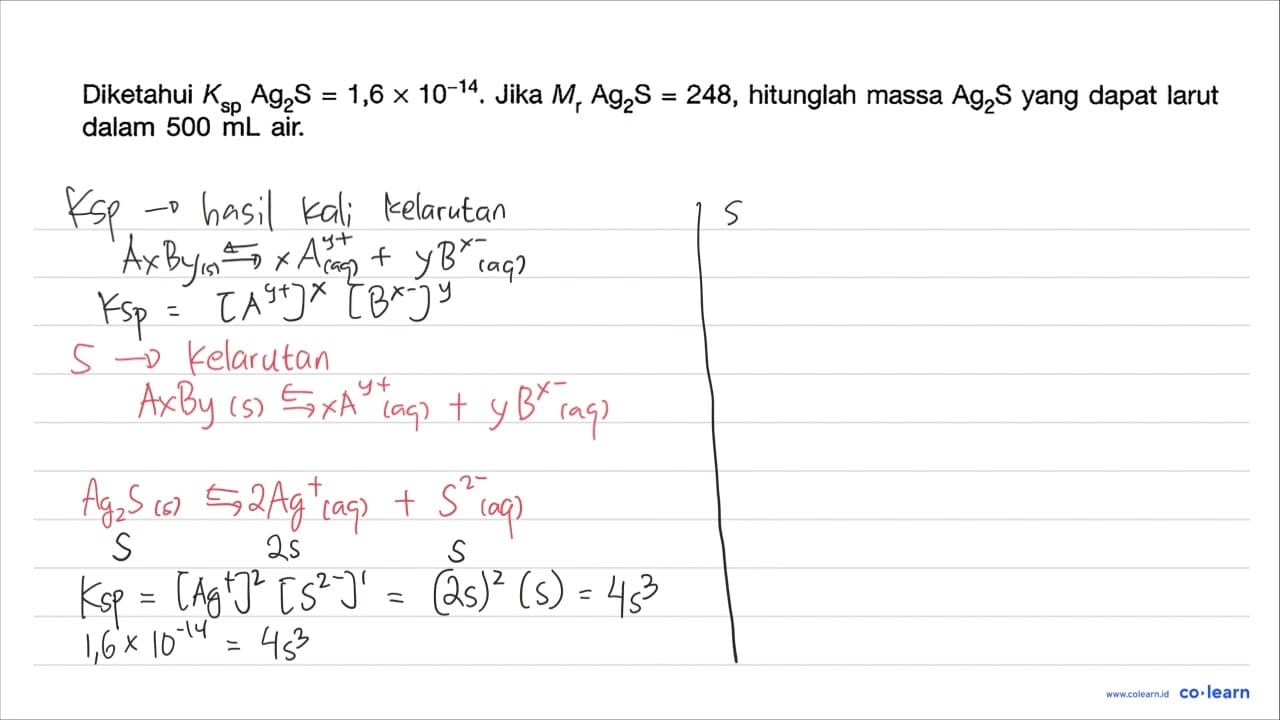 Diketahui Ksp Ag₂S = 1,6 × 10⁻¹⁴. Jika Mr Ag₂S = 248, hitunglah massa Ag₂S yang dapat larut
dalam 500 mL air.
Ksp → hasil kali kelarutan
AxBy(s) ⇆ x A^y+ (aq) + y B^x- (aq)
Ksp = [A^y+]^x [B^x-]^y
S → kelarutan
AxBy (s) ⇆ x A^y+ (aq) + y B^x- (aq)
Ag₂S (s) ⇆ 2Ag⁺ (aq) + S²⁻ (aq)
S 2s S
Ksp = [Ag⁺]² [S²⁻]¹ = (2s)² (s) = 4s³
1,6 × 10⁻¹⁴ = 4s³
S
www.colearn.id co·learn